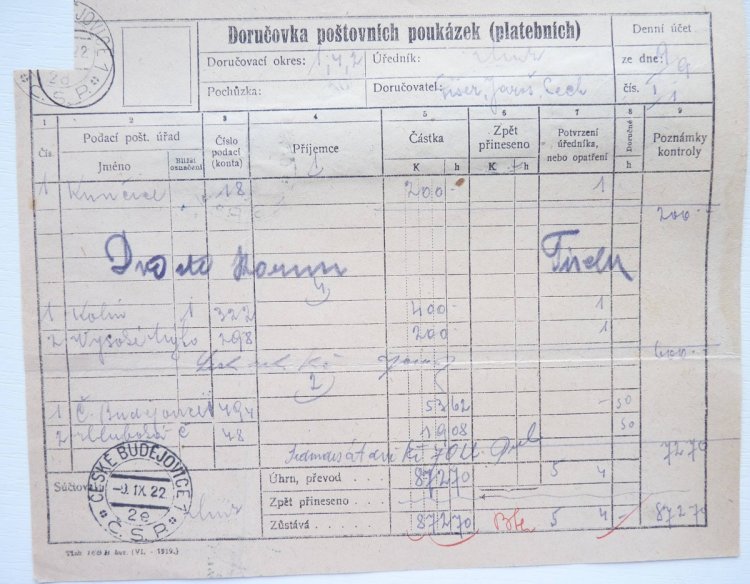 Doručovka poštovních poukázek (platebních)
Denní účet
Doručovací okres: 1, 4, 2 Úředník:
ze dne: 9/9
Pochůzka: Doručovatel: Fišer, Jaroš, Čech
čís. 1/1
1 2 3 4 5 6 7 8 9
Čís. Podací pošt. úřad Číslo podací (konta) Příjemce Částka Zpět přineseno Potvrzení úředníka, nebo opatření Doručné Poznámky kontroly
Jméno Bližší označení K h K h h
1
1 Kunčice 18 200 - 1
200 -
Dvě sto korun
4
1 Kolín 1 322 400 - 1
2 Vysoké Mýto 298 200 1
600 -
2
1 Č. Budějovice 494 53 62 - 50
2 Hluboká 48 19 08 50
Sedmdesát dvě Kč 70
72 70
Úhrn, převod 872 70 5 4
Součtoval
Zpět přineseno
Zůstává 872 70 5 4 - 872 70
ČESKÉ BUDĚJOVICE 1
-9.IX.22
2a
Č.S.P.
22
2a
Č.S.P.
(VI. - 1919.)